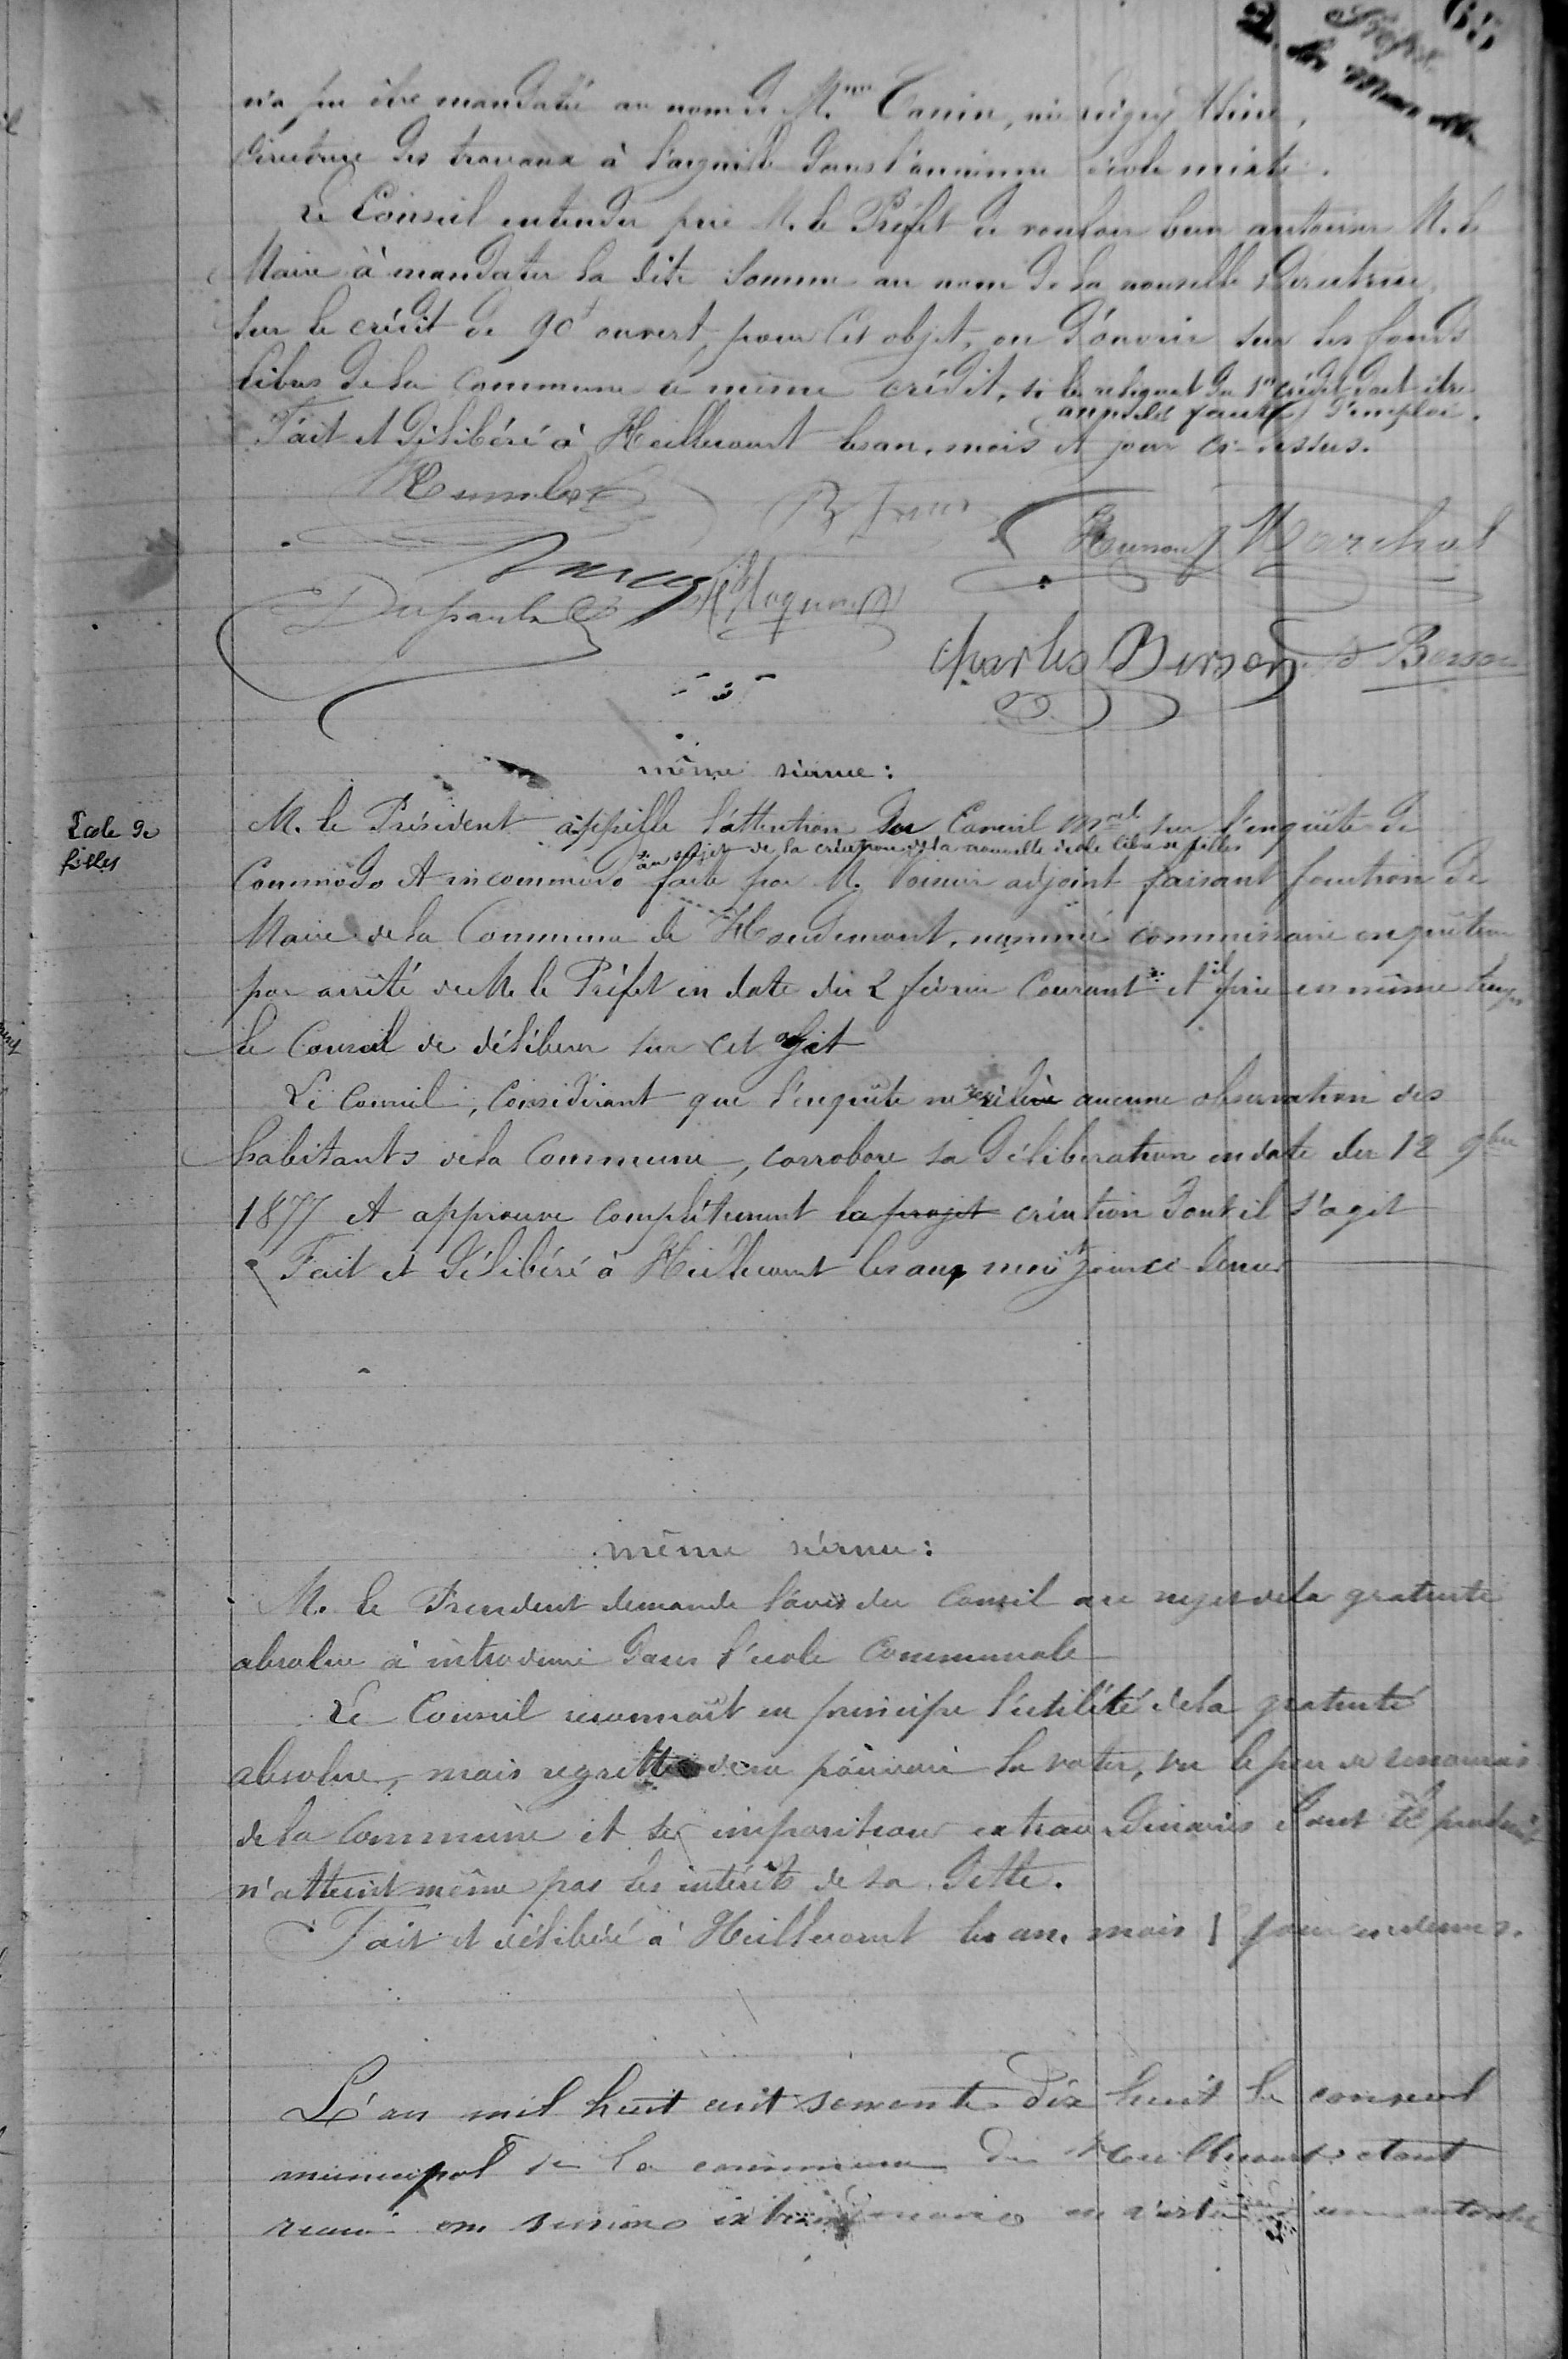 65
n'a pu être mandaté au nom de M.me
directrice des travaux à l'aiguille dans l'ancienne école mixte.
Le Conseil entendu prie M. le Préfet de vouloir bien autoriser M. le
Maire à mandater la dite somme au nom de la nouvelle Directrice,
sur le crédit de 90f ouvert, pour cet objet, ou d'ouvrir sur les fonds
libres de la commune le même crédit, si le reliquat du 1er crédit doit être
annulé faute d'emploi.
Fait et délibéré à Heillecourt les an, mois et jour ci-dessus.
Marchal
Charles Berson Berson
même séance :
Ecole de
filles
M. le Président appelle l'attention du Conseil mal sur l'enquête de
au sujet de la création de la nouvelle école libre de filles
Commodo et incommodo faite par M. Voinier adjoint faisant fonction de
Maire de la Commune de Houdemont, nommé commissaire enquêteur
par arrêté de M. le Préfet en date du 2 février Courant et il prie en même temps
le Conseil de délibérer sur cet objet
Le Conseil, considérant que l'enquête ne révèle aucune observation des
habitants de la Commune, corrobore sa délibération en date du 12 9bre
1877 et approuve complètement la projet création dont il s'agit
Fait et délibéré à Heillecourt les an, mois et jour ci-dessus
même séance :
M. le Président demande l'avis du Conseil au sujet de la gratuité
absolue à introduire dans l'école Communale
Le Conseil reconnaît en principe l'utilité de la gratuité
absolue, mais regrette de ne pouvoir la voter, vu le peu de ressources
de la Commune et ses impositions extraordinaires dont le produit
n'atteint même pas les intérêts de sa dette.
Fait et délibéré à Heillecourt les an, mois et jour ci-dessus.
L'an mil huit cent soixante dix huit le conseil
municipal de la commune de Heillecourt étant
réuni en session extraordinaire en vertu d'une